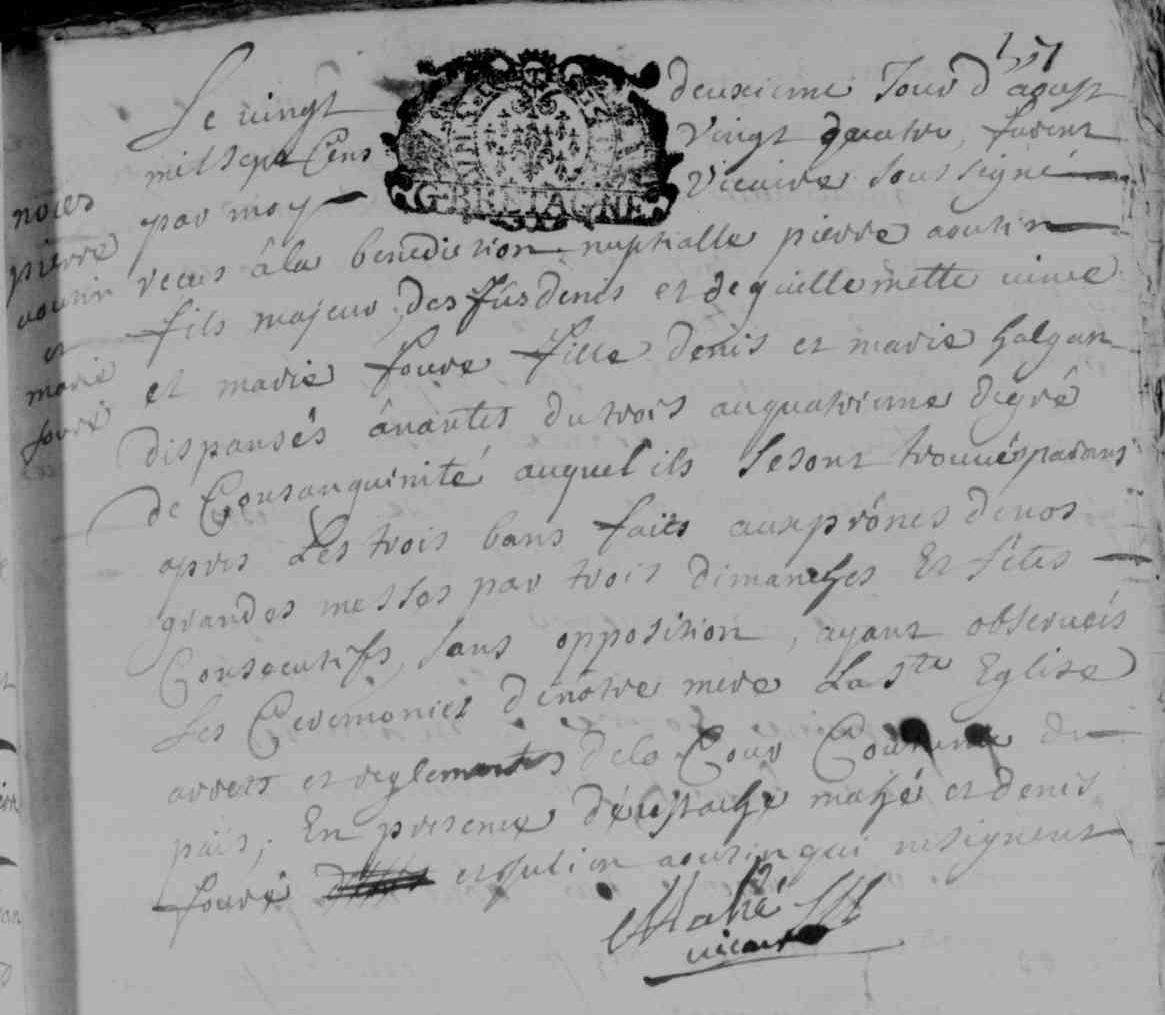 Le vingt deuxieme Jour d'aoust
mil sept Cens vingt quatre, furent
par moy vicaire soussigné
receus â la benediction nuptialle pierre aoutin
fils majeur, des fûs denis et de guillemette
et marie fouré fille denis et marie halgan
dispansés ânantes du trois au quatrieme degré
de Consanguinité auquel ils se sont trouués parans
apres Les trois bans faits aux prônes de nos
grandes messes par trois dimanches Et fêtes
Consecutifs, sans opposition, ayant obserueés
Les Ceremonies de notre mere La Ste Eglise
arrets et reglements de la Cour Coutume du
païs, En presence d'eustache mahé et denis
fouré et Julien aoutin qui ne signent
Mahé
vicaire
noces
pierre
aoutin
et
marie
fouré
G·BRETAGNE